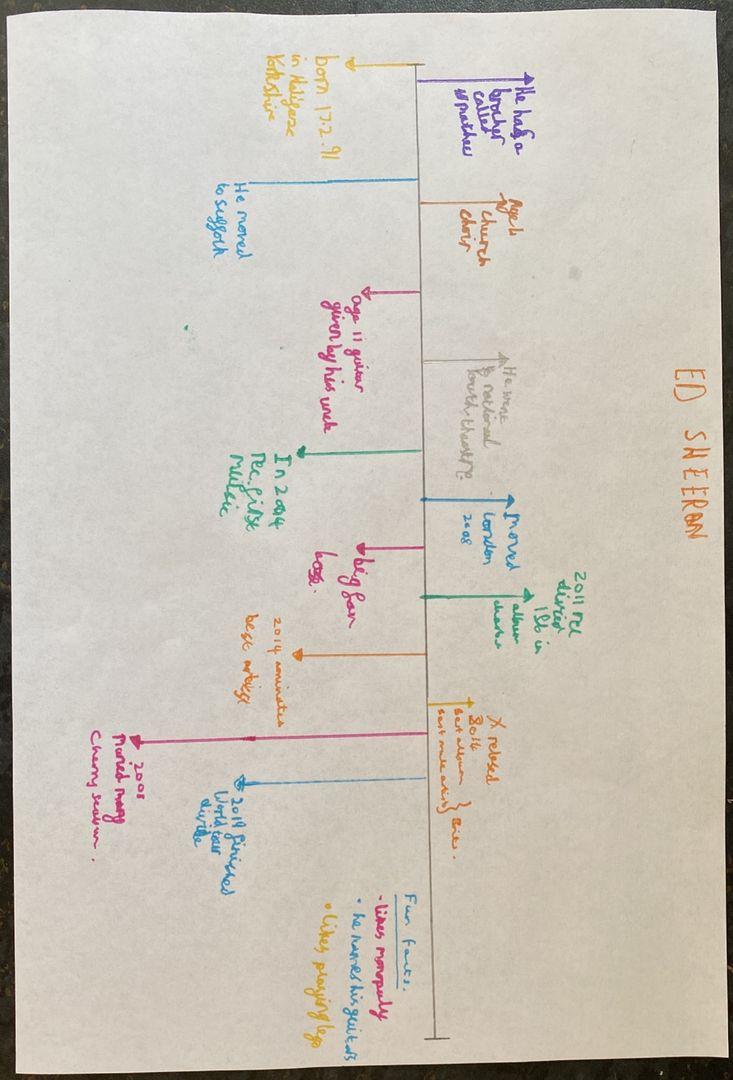 ED SHEERAN
He had a
brother
called
Age 4
church
choir
He went
to national
Youth theatre.
Moved
London
2008
2011 rel
1st in
album
charts
X relesed
2014
best album
best male artist } Brits.
born 17.2.91
in Halifax
Yorkshire
He moved
to suffolk
age 11 guitar
given by his uncle
In 2004
rec. first
music
big fan
base.
2014
best artist
2008
Cherry season.
2019 finished
World tour
divide
Fun facts.
• likes monopoly
• he names his guitars
• likes playing lego